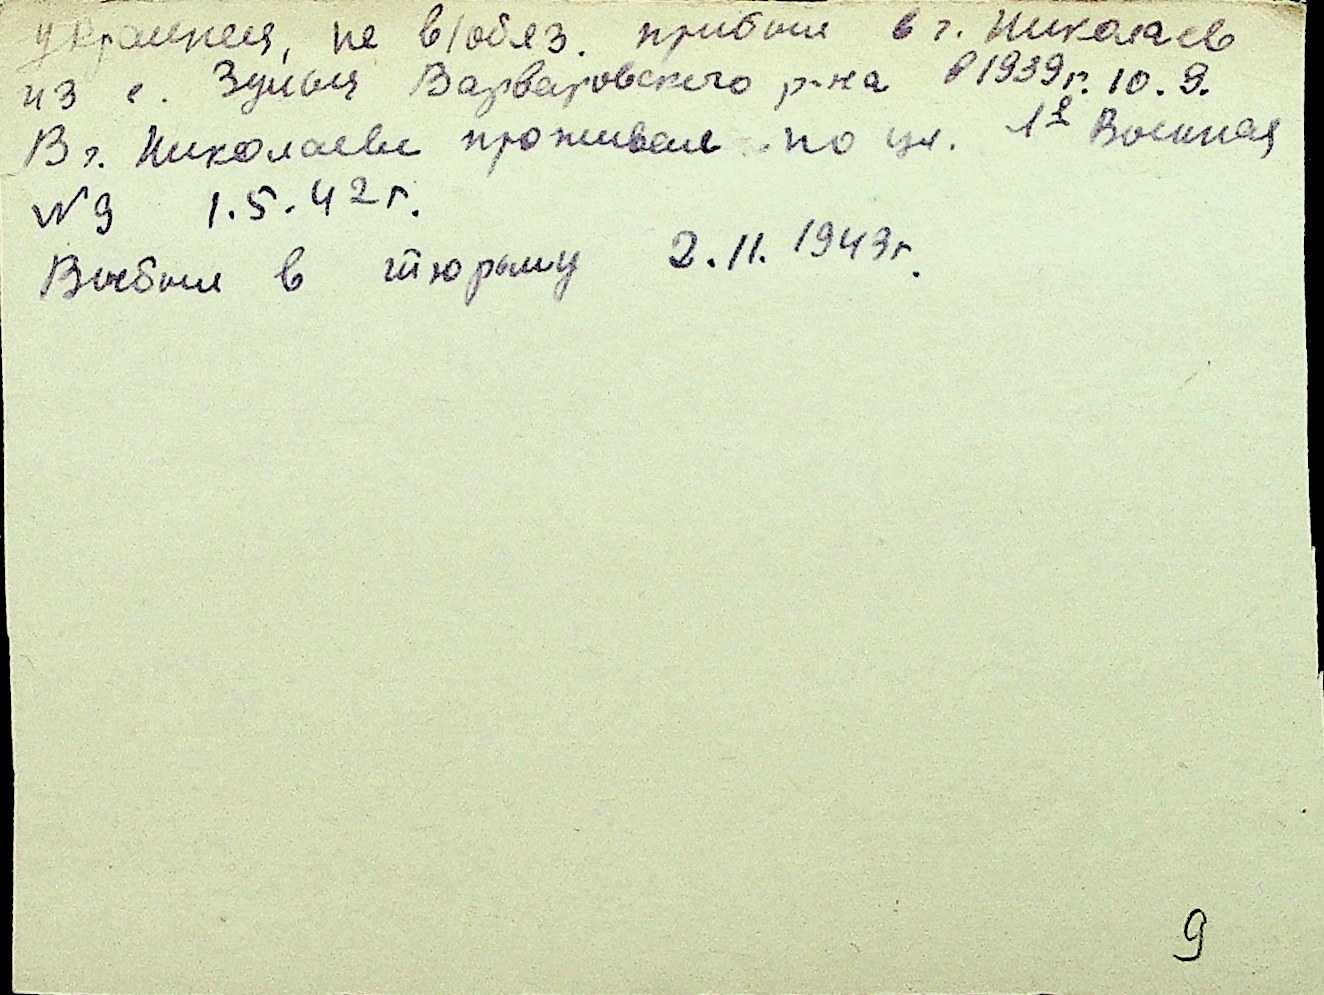 украинец, не в/обяз. прибыл в г. Николаев
из с. Варваровского р-на в 1939г. 10.9.
В г. Николаеве проживал по ул. 1я Военная
№9 1.5.42г.
Выбыл в тюрьму 2.11.1943г.
9